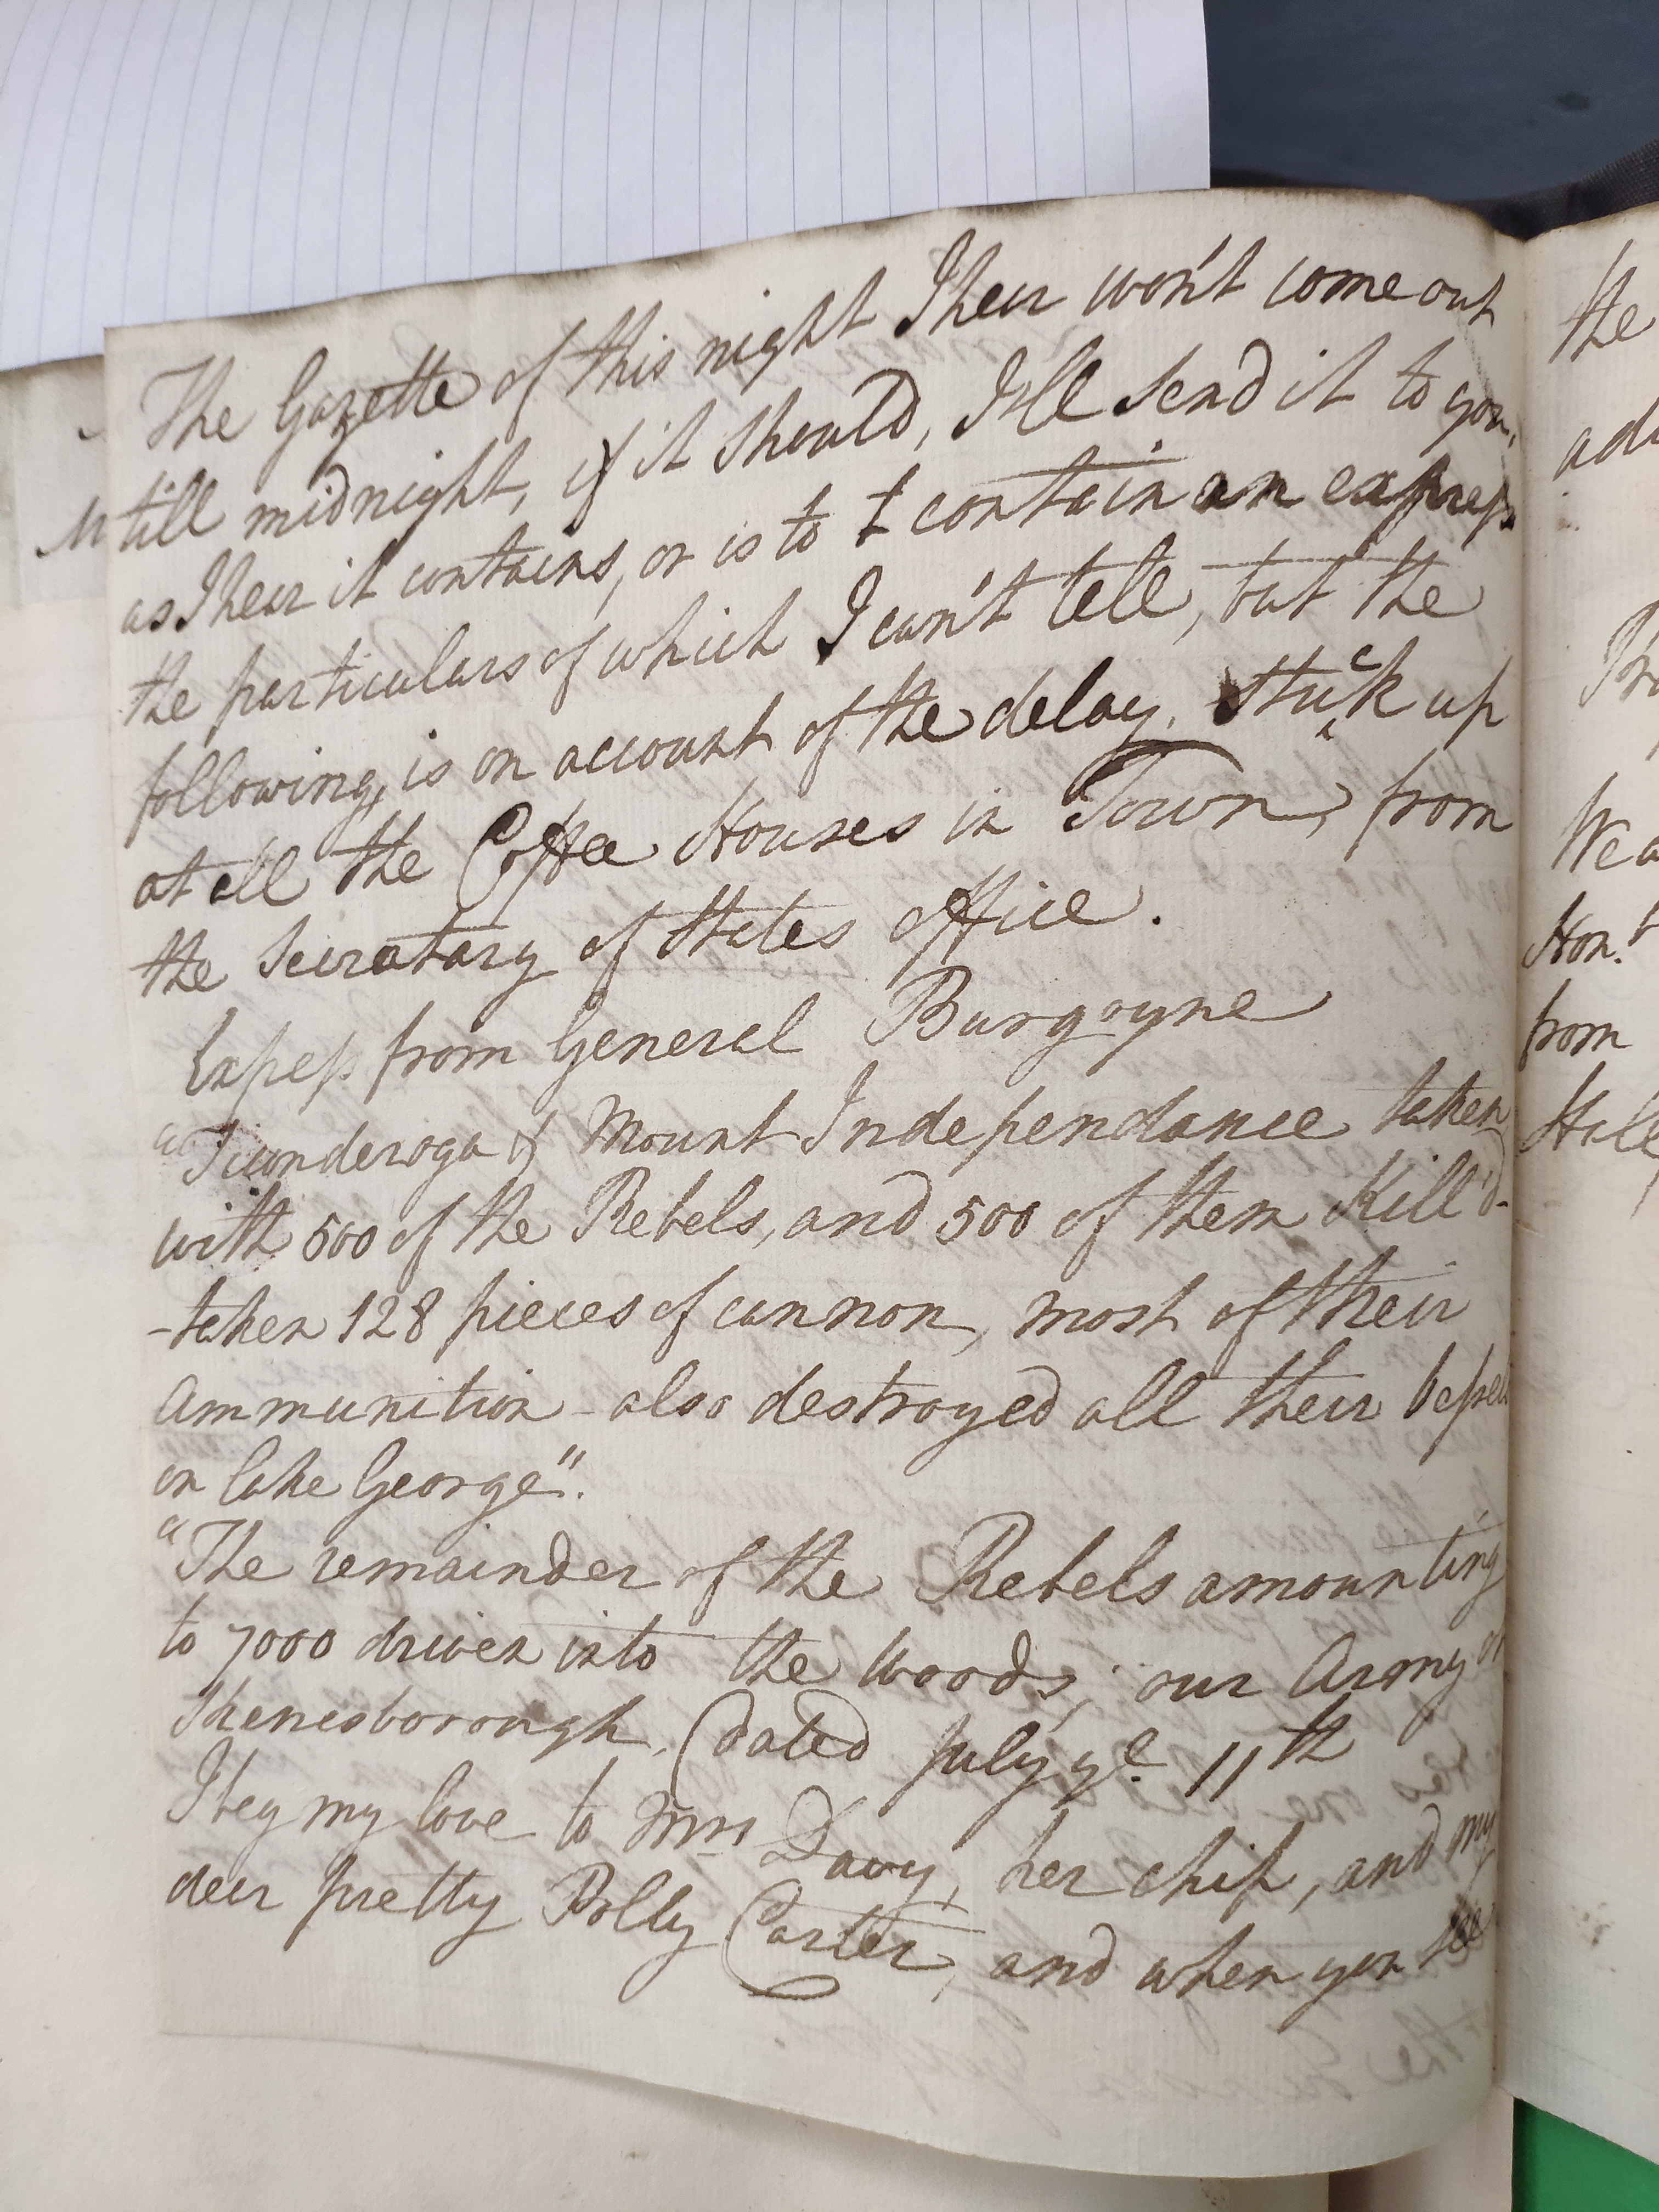 The Gazette of this night I hear won't come out
till midnight, if it should, I'll send it to you,
as I hear it contains, or is to contain an express
the particulars of which I can't tell, but the
following, is on account of the delay, stuck up
at all the Coffee Houses in Town, from
the Secratary of States office.
Expess from General Burgoyne
"Ticonderoga & Mount Independance taken
with 500 of the Rebels, and 500 of them Kill'd-
-taken 128 pieces of cannon, most of their
Ammunition - also destroyed all their
on Lake George".
"The remainder of the Rebels amounting
to 7000 driven into the Woods; our Army
Skenesborough. (dated July ye. 11th
I beg my love to Mrs Davy, her chip, and my
dear pretty Polly Carter, and when you see
the
We
Hon.t
from